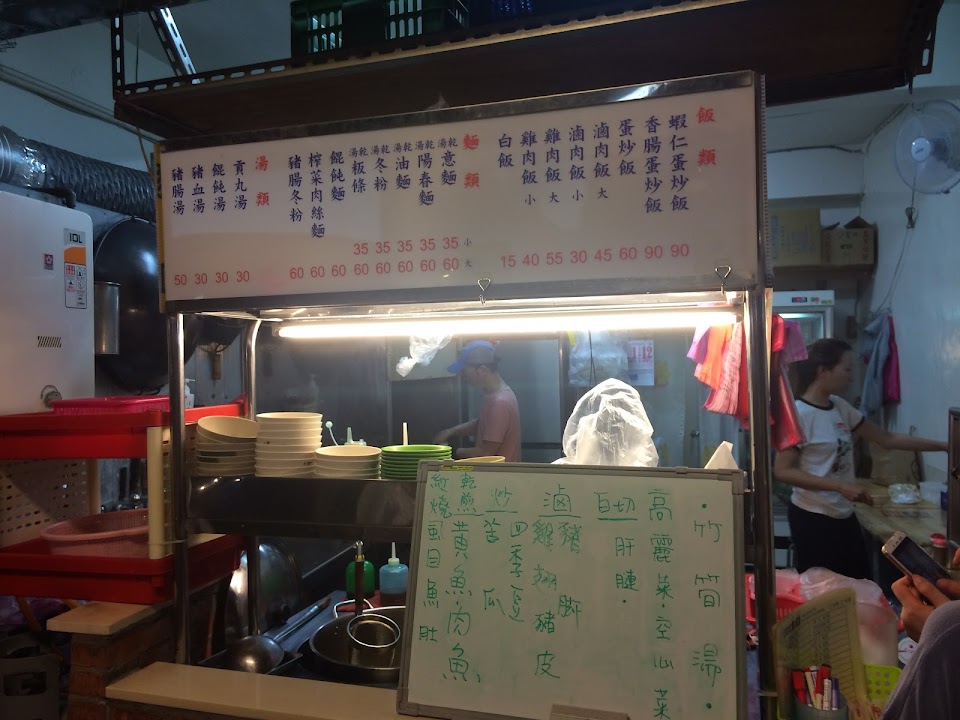 飯類
蝦仁蛋炒飯
香腸蛋炒飯
蛋炒飯
滷肉飯 大
滷肉飯 小
雞肉飯 大
雞肉飯 小
白飯
15 40 55 30 45 60 90 90
麵類
乾湯意麵
乾湯陽春麵
乾湯油麵
乾湯冬粉
乾湯粄條
餛飩麵
榨菜肉絲麵
豬腸冬粉
35 35 35 35 35 小
60 60 60 60 60 60 60 60 大
湯類
貢丸湯
餛飩湯
豬血湯
豬腸湯
50 30 30 30
·竹筍湯·
高麗菜·空心菜
白切
肝腱·
滷
豬腳
雞翅 豬皮
炒
四季豆
苦瓜
乾煎
黃魚·肉魚
紅燒
虱目魚肚
12